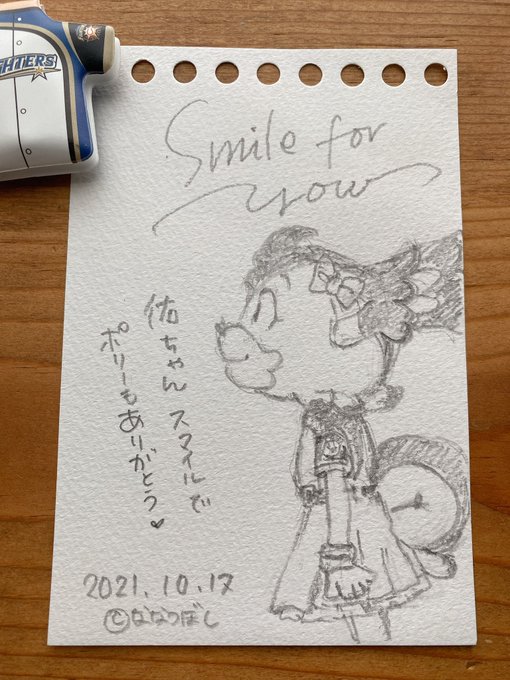 GHTERS
Smile for
you
佑ちゃん スマイルで
ポリーもありがとう♥
2021.10.17
©ななつぼし